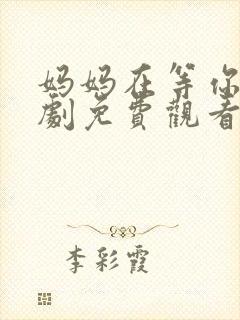 妈妈在等你
劇免費觀看
李彩霞